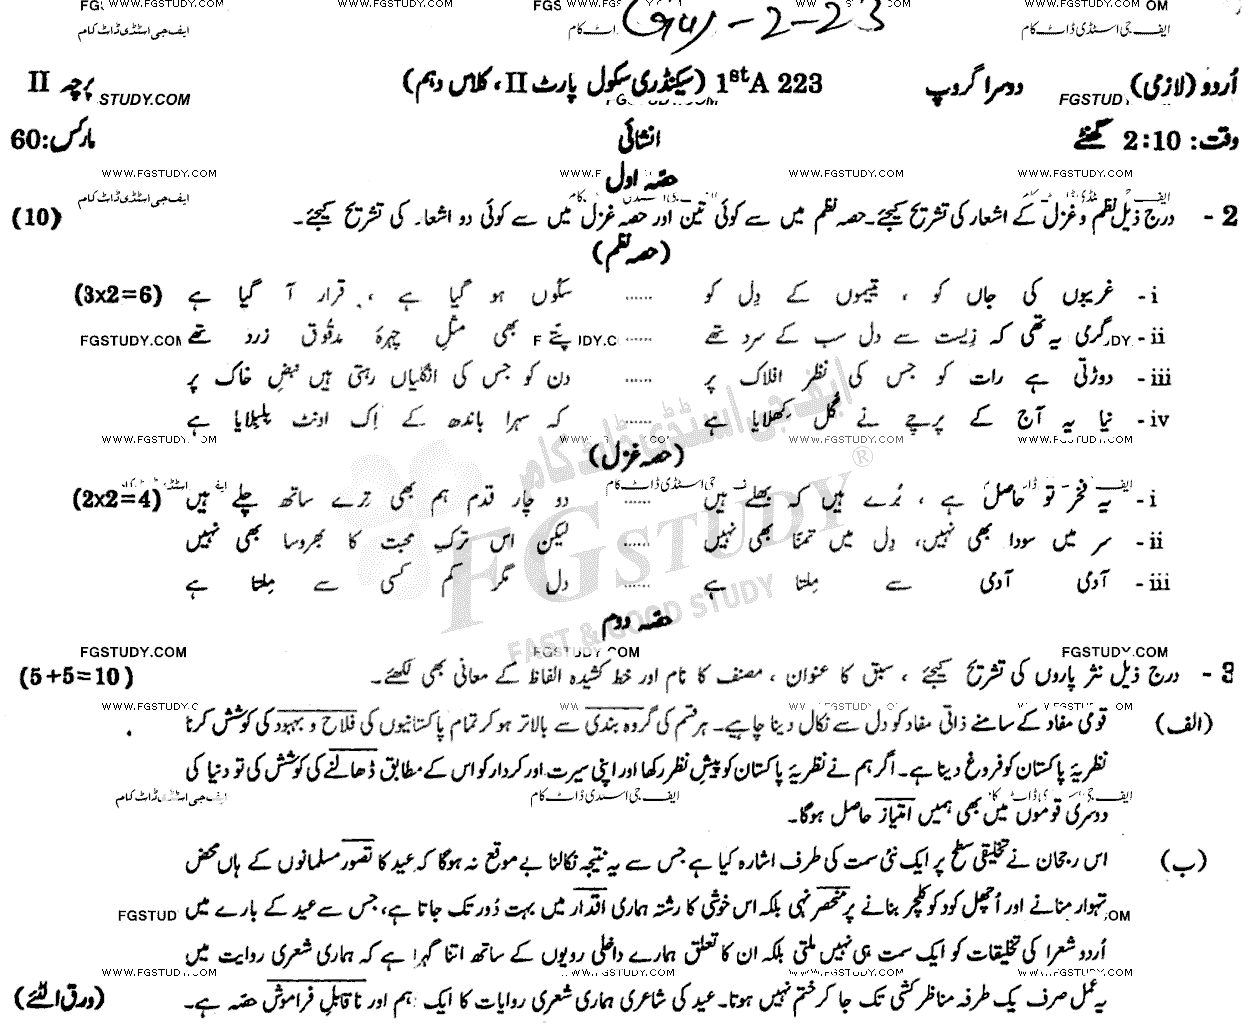 FG WWW.FGSTUDY.COM FGS WWW.FGS WWW.FGSTUDY.COM
ایف جی اسٹڈی ڈاٹ کام ایف جی اسٹڈی ڈاٹ کام
2-23
اُردو (لازمی) دوسرا گروپ 1stA 223 (سیکنڈری سکول پارٹ II، کلاس دہم) پرچہ II
STUDY.COM FGSTUDY.COM FGSTUD
وقت: 2:10 گھنٹے انشائی مارکس:60
WWW.FGSTUDY.COM WWW.F WWW.FGSTUDY.COM WWW.FGSTUDY.COM
حصہ اول
ایف جی اسٹڈی ڈاٹ کام
2 - درج ذیل نظم و غزل کے اشعار کی تشریح کیجئے۔ حصہ نظم میں سے کوئی تین اور حصہ غزل میں سے کوئی دو اشعار کی تشریح کیجئے۔ (10)
(حصہ نظم)
i- غریبوں کی جاں کو ، یتیموں کے دِل کو ...... سکوں ہو گیا ہے ، قرار آ گیا ہے (3x2=6)
ii- گرمی یہ تھی کہ زیست سے دل سب کے سرد تھے ...... پتے بھی مثلِ چہرۂ مدقُوق زرد تھے
FGSTUDY.COM
iii- دوڑتی ہے رات کو جس کی نظر افلاک پر ...... دن کو جس کی انگلیاں رہتی ہیں نبضِ خاک پر
iv- نیا یہ آج کے پرچے نے گُل کِھلایا ہے ...... کہ سہرا باندھ کے اِک اونٹ بلبلایا ہے
WWW.FGSTUDY.COM WWW.FGSTUDY.COM WWW.FGSTUDY.COM
(حصہ غزل)
i- یہ فخر تو حاصل ہے ، بُرے ہیں کہ بھلے ہیں ...... دو چار قدم ہم بھی ترے ساتھ چلے ہیں (2x2=4)
ii- سر میں سودا بھی نہیں، دِل میں تمنّا بھی نہیں ...... لیکن اس ترکِ محبت کا بھروسا بھی نہیں
iii- آدمی آدمی سے مِلتا ہے ...... دل مگر کم کسی سے مِلتا ہے
ایف جی اسٹڈی ڈاٹ کام
FGSTUDY®
FAST & GOOD STUDY
حصہ دوم
FGSTUDY.COM FGSTUDY.COM FGSTUDY.COM
3 - درج ذیل نثر پاروں کی تشریح کیجئے ، سبق کا عنوان ، مصنف کا نام اور خط کشیدہ الفاظ کے معانی بھی لکھئے۔ (5+5=10)
(الف) قومی مفاد کے سامنے ذاتی مفاد کو دل سے نکال دینا چاہے۔ ہر قسم کی گروہ بندی سے بالاتر ہو کر تمام پاکستانیوں کی فلاح و بہبود کی کوشش کرنا
نظریۂ پاکستان کو فروغ دینا ہے۔ اگر ہم نے نظریۂ پاکستان کو پیشِ نظر رکھا اور اپنی سیرت اور کردار کو اس کے مطابق ڈھالنے کی کوشش کی تو دنیا کی
ایف جی اسٹڈی ڈاٹ کام ایف جی اسٹڈی ڈاٹ کام
دوسری قوموں میں بھی ہمیں امتیاز حاصل ہوگا۔
(ب) اس رجحان نے تخلیقی سطح پر ایک نئی سمت کی طرف اشارہ کیا ہے جس سے یہ نتیجہ نکالنا بے موقع نہ ہوگا کہ عید کا تصور مسلمانوں کے ہاں محض
تہوار منانے اور اُچھل کود کو کلچر بنانے پر منحصر نہیں بلکہ اس خوشی کا رشتہ ہماری اقدار میں بہت دُور تک جاتا ہے، جس سے عید کے بارے میں
FGSTUD
اُردو شعرا کی تخلیقات کو ایک سمت ہی نہیں ملتی بلکہ ان کا تعلق ہمارے داخلی رویوں کے ساتھ اتنا گہرا ہے کہ ہماری شعری روایت میں
WWW.FGSTUDY.COM WWW.FGSTUDY.COM WWW.FGSTUDY.COM
یہ عمل صرف یک طرفہ مناظر کشی تک جا کر ختم نہیں ہوتا۔ عید کی شاعری ہماری شعری روایات کا ایک اہم اور ناقابلِ فراموش حصّہ ہے۔ (ورق الٹئے)